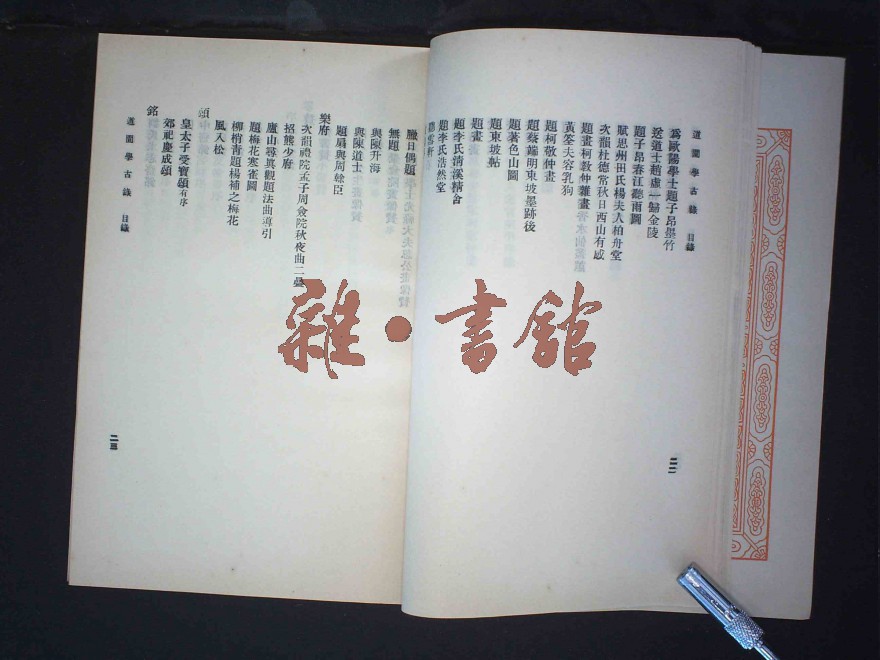 道園學古錄 目錄
爲歐陽學士題子昂墨竹
送道士趙虛一歸金陵
題子昂春江聽雨圖
賦思州田氏楊夫人柏舟堂
次韻杜德常秋日西山有感
題畫柯敬仲雜畫
黃筌芙容乳狗
題柯敬仲畫
題蔡端明東坡墨跡後
題著色山圖
題東坡帖
題畫
題李氏淸溪精舍
題李氏浩然堂
聽雪軒
二二
臘日偶題
無題
與陳升海
與陳道士
題扇與周餘臣
樂府
次韻禮院孟子周僉院秋夜曲二疊
招熊少府
廬山尋眞觀題法曲導引
題梅花寒雀圖
柳梢靑題楊補之梅花
風入松
頌
皇太子受寶頌有序
郊祀慶成頌
銘
道園學古錄 目錄
二三
雜·書舘